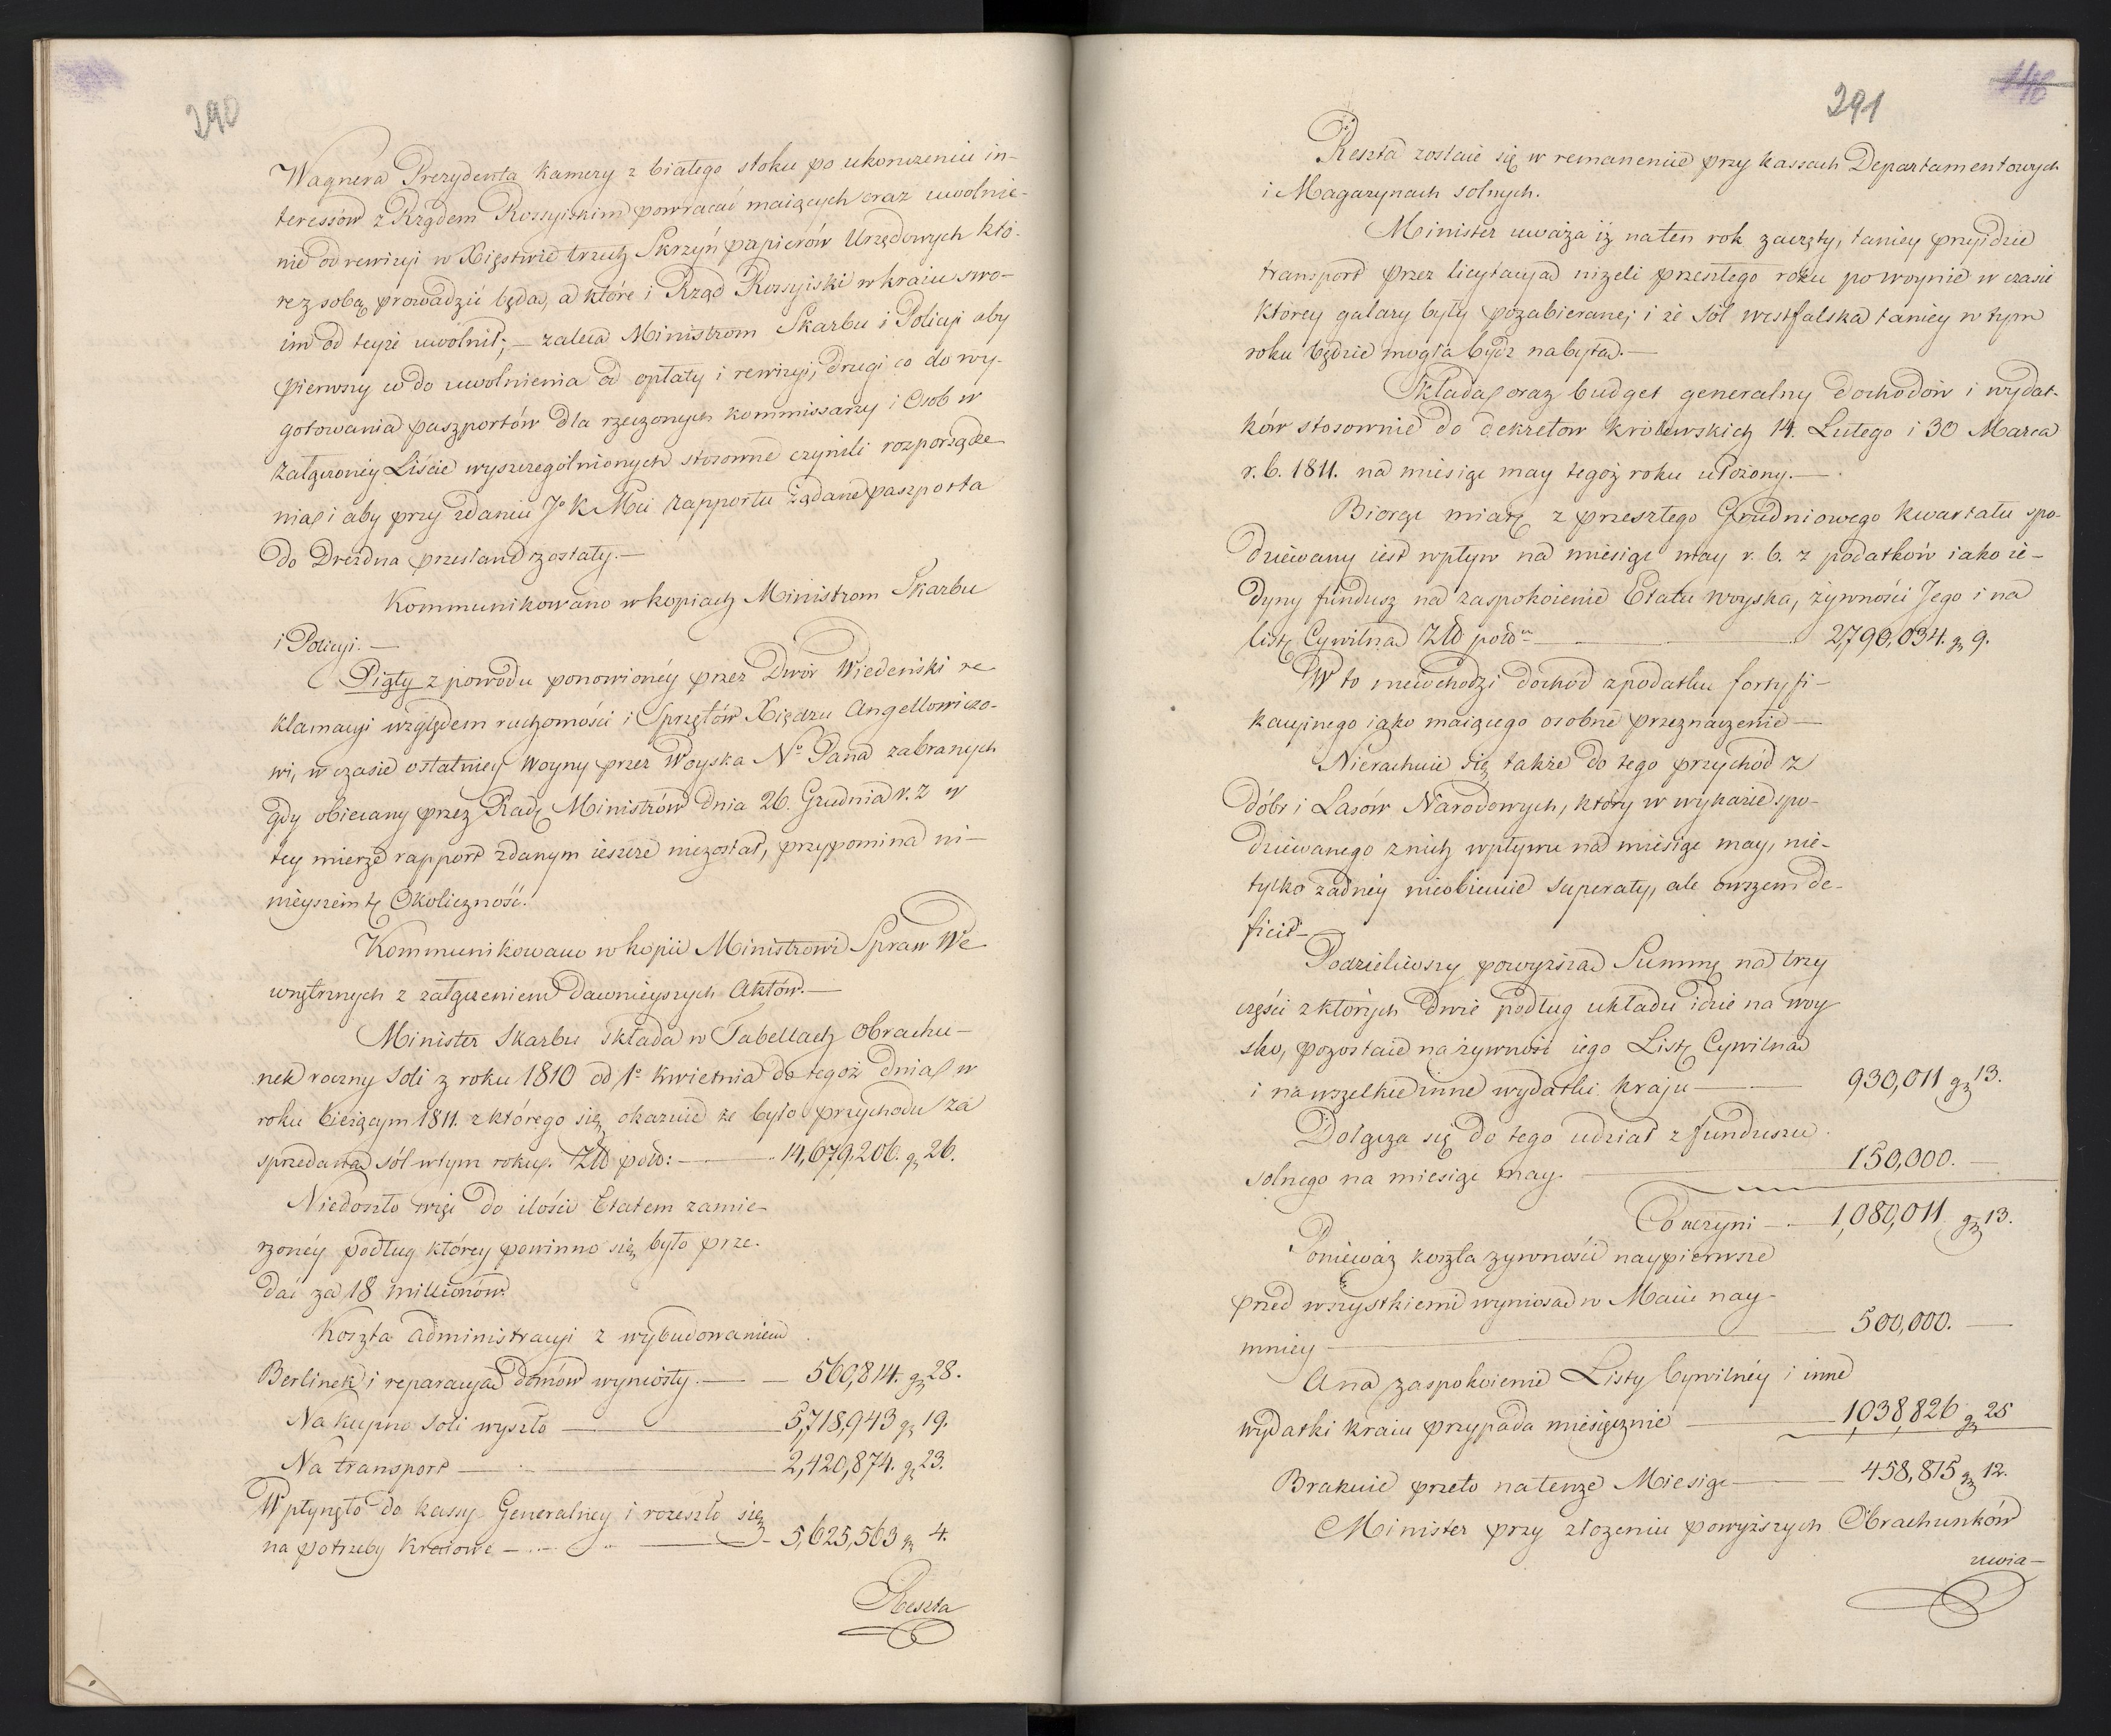 290
Wagnera Prezydenta Kamery z białego stoku po ukonczeniu in-
teressów z Rządem Rossyiskim powracać maiących oraz uwolnie-
nie od rewizyi w Xięstwie trzech Skrzyń papierów Urzędowych któ-
re z sobą prowadzić będą, a które i Rząd Rossyiski w kraiu swo-
im od teyże uwolnił; — zaleca Ministrom Skarbu i Policyi aby
pierwszy co do uwolnienia od opłaty i rewizyi, drugi co do wy-
gotowania paszportów dla rzeczonych kommissarzy i Osob w
załączoney Liście wyszczególnionych stosowne czynili rozporządze
nia i aby przy zdaniu Jo K Mci rapportu żądane paszporta
do Drezdna przesłane zostały. —
Kommunikowano w kopiach Ministrom Skarbu
i Policyi. —
Piąty z powodu ponowioney przez Dwór Wiedeński re
klamacyi względem ruchomości i Sprzętów Xiędzu Angellowiczo-
wi, w czasie ostatniey Woyny przez Woyska No Pana zabranych
gdy obiecany przez Radę Ministrów dnia 26. Grudnia r. z w
tey mierze rapport zdanym ieszcze niezostał, przypomina ni-
nieyszem tę Okoliczność.
Kommunikowano w kopii Ministrowi Spraw We
wnętrznych z załączeniem dawnieyszych Aktów. —
Minister Skarbu składa w Tabellach Obrachu-
nek roczny soli z roku 1810 od 1o kwietnia do tegoż dnia w
roku bieżącym 1811. z którego się okazuie że było przychodu za
sprzedaną sól w tym roku. Złł pols: — 14,679,206. gr 26.
Niedoszło więc do ilości Etatem zamie-
rzoney podług którey powinno się było prze-
dać za 18 millionów.
Koszta administracyi z wybudowaniem
Berlinek i reparacyą domów wyniosły. — 560,814. gr 28.
Na kupno soli wyszło — 5,718,943 gr 19.
Na transport — 2,420,874. gr 23.
Wpłynęło do kassy Generalney i rozeszło się
na potrzeby kraiowe — 5,625,563 gr 4.
Reszta
116
291
Reszta zostaie się w remanencie przy kassach Departamentowych
i Magazynach solnych.
Minister uważa iż na ten rok zaczęty, taniey przyidzie
transport przez licytacyą niżeli przeszłego roku po woynie w czasie
którey galary były pozabierane; i że sól westfalska taniey w tym
roku będzie mogła bydź nabyta. —
Składa oraz budget generalny dochodów i wydat-
ków stosownie do dekretow królewskich 14. Lutego i 30 Marca
r. b. 1811. na miesiąc may tegoż roku ułożony. —
Biorąc miarę z przeszłego Grudniowego kwartału spo-
dziewany iest wpływ na miesiąc may r. b. z podatków iako ie-
dyny fundusz na zaspokoienie Etatu woyska, żywności Jego i na
listę Cywilną Złł pols — 2,790,034. gr 9.
W to niewchodzi dochód z podatku fortyfi-
kacyinego iako maiącego osobne przeznaczenie —
Nierachuie się także do tego przychód z
dóbr i Lasów Narodowych, który w wykazie spo-
dziewanego z nich wpływu na miesiąc may, nie-
tylko żadney nieobiecuie superaty, ale owszem de-
ficit —
Podzieliwszy powyższą Summę na trzy
części z których dwie podług układu idzie na woy
sko, pozostaie na żywność iego Listę Cywilną
i na wszelkie inne wydatki kraju — 930,011 gr 13.
Dołącza się do tego udział z funduszu
solnego na miesiąc may. 150,000. —
Co uczyni — 1,080,011 gr 13.
Ponieważ koszta żywności naypierwsze
przed wszystkiemi wynioszą w Maiu nay-
mniey — 500,000. —
A na zaspokoienie Listy Cywilnéy i inne
wydatki kraiu przypada miesięcznie — 1,038,826 gr 25
Brakuie przeto na tenże Miesiąc — 458,815 gr 12.
Minister przy złożeniu powyższych Obrachunków
uwia-